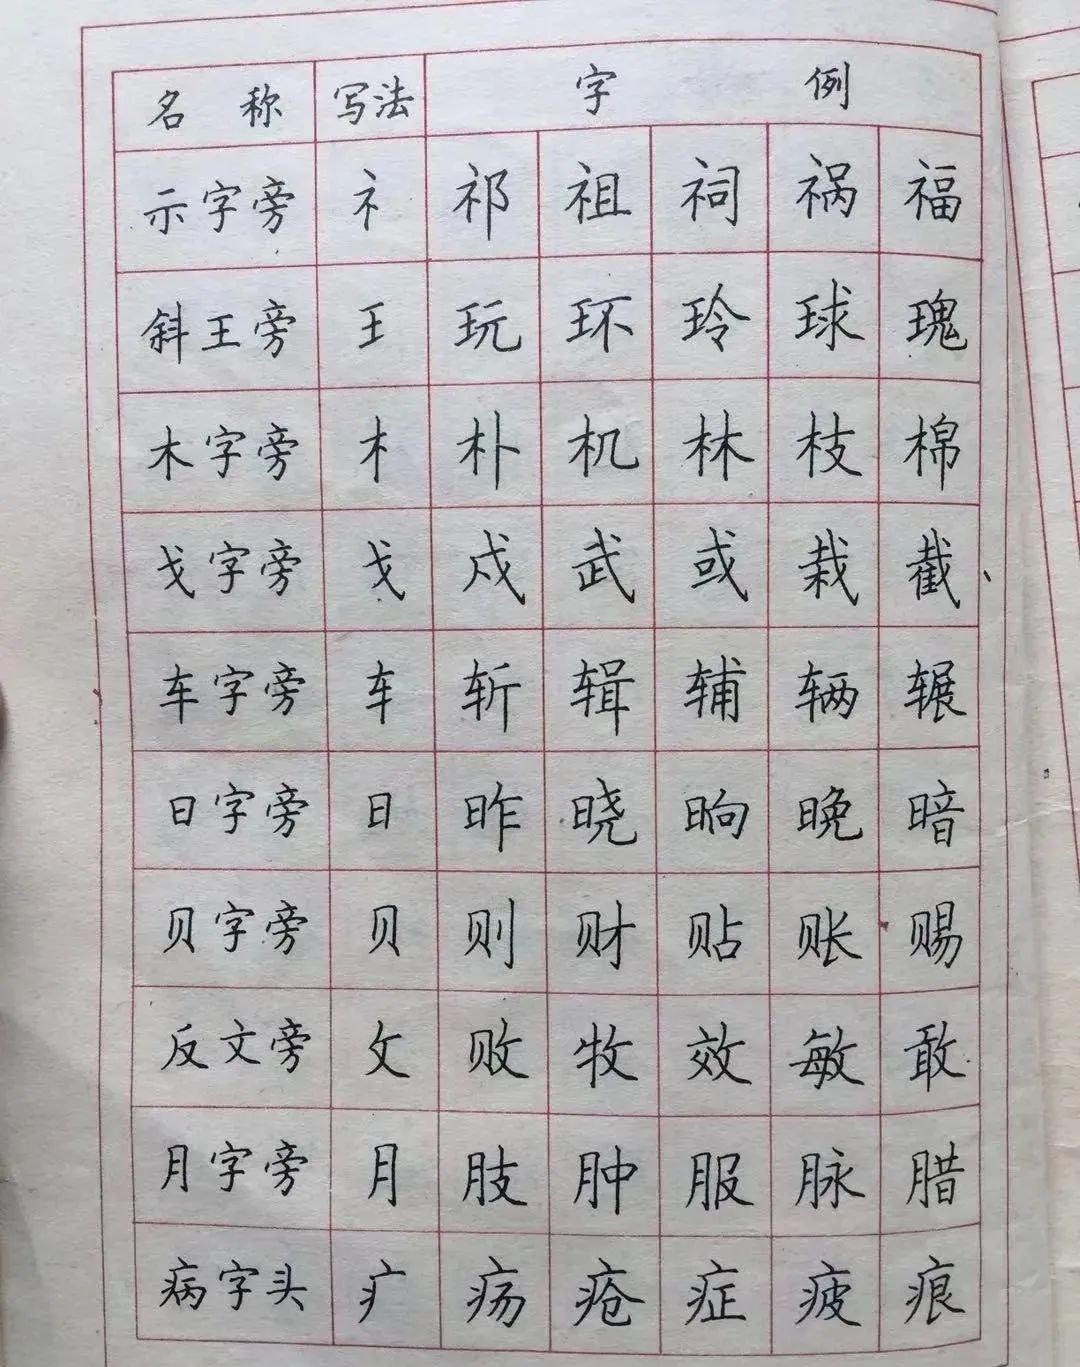 名称 写法 字例
示字旁 礻 祁 祖 祠 祸 福
斜王旁 王 玩 环 玲 球 瑰
木字旁 木 朴 机 林 枝 棉
戈字旁 戈 戍 武 或 栽 截
车字旁 车 斩 辑 辅 辆 辗
日字旁 日 昨 晓 晌 晚 暗
贝字旁 贝 则 财 贴 账 赐
反文旁 攵 败 牧 效 敏 敢
月字旁 月 肢 肿 服 脉 腊
病字头 疒 疡 疮 症 疲 痕